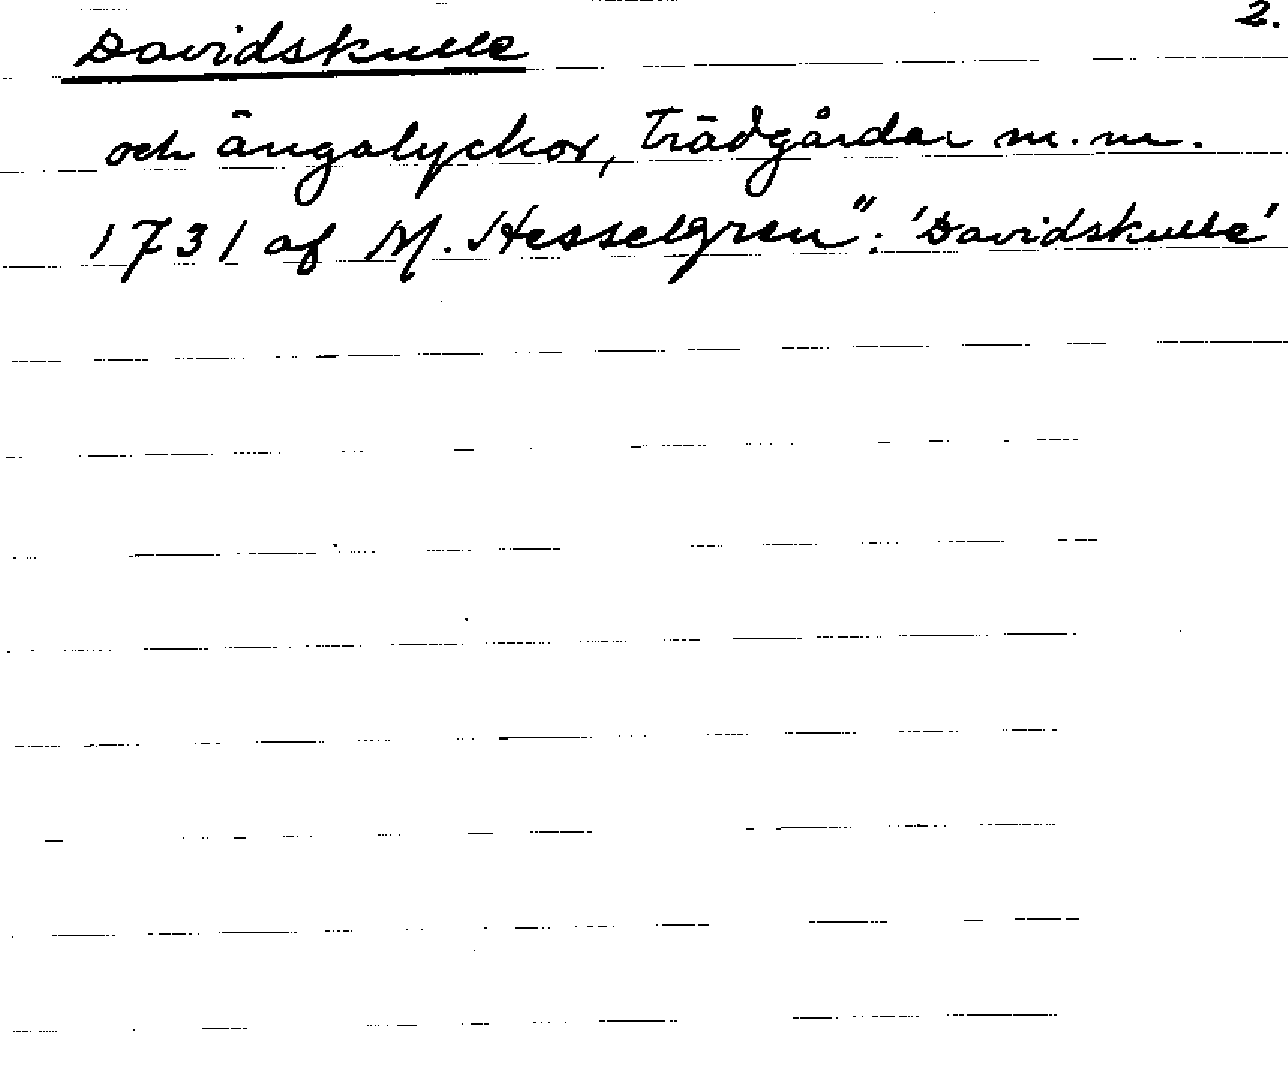 Davidskulle 2.
och ängalyckor, trädgårdar m.m.
1731 af M. Hesselgren": 'Davidskulle'